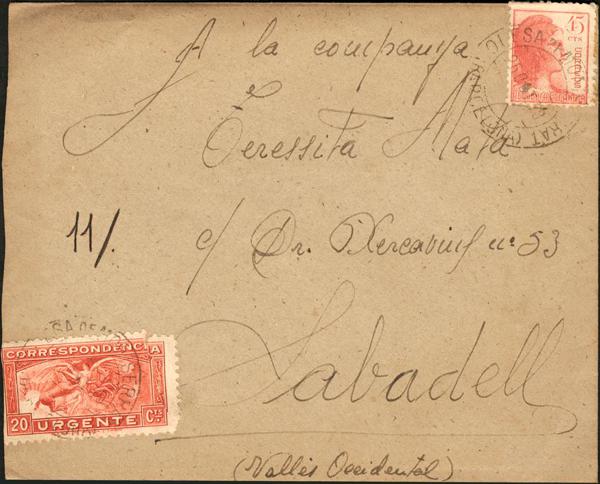 A la companya
Teressita Mata
11/. c/ Dr. Xercavins nº 53
Sabadell
(Vallès Occidental)
45
CTS
CORRESPONDENCIA
20 URGENTE Cts